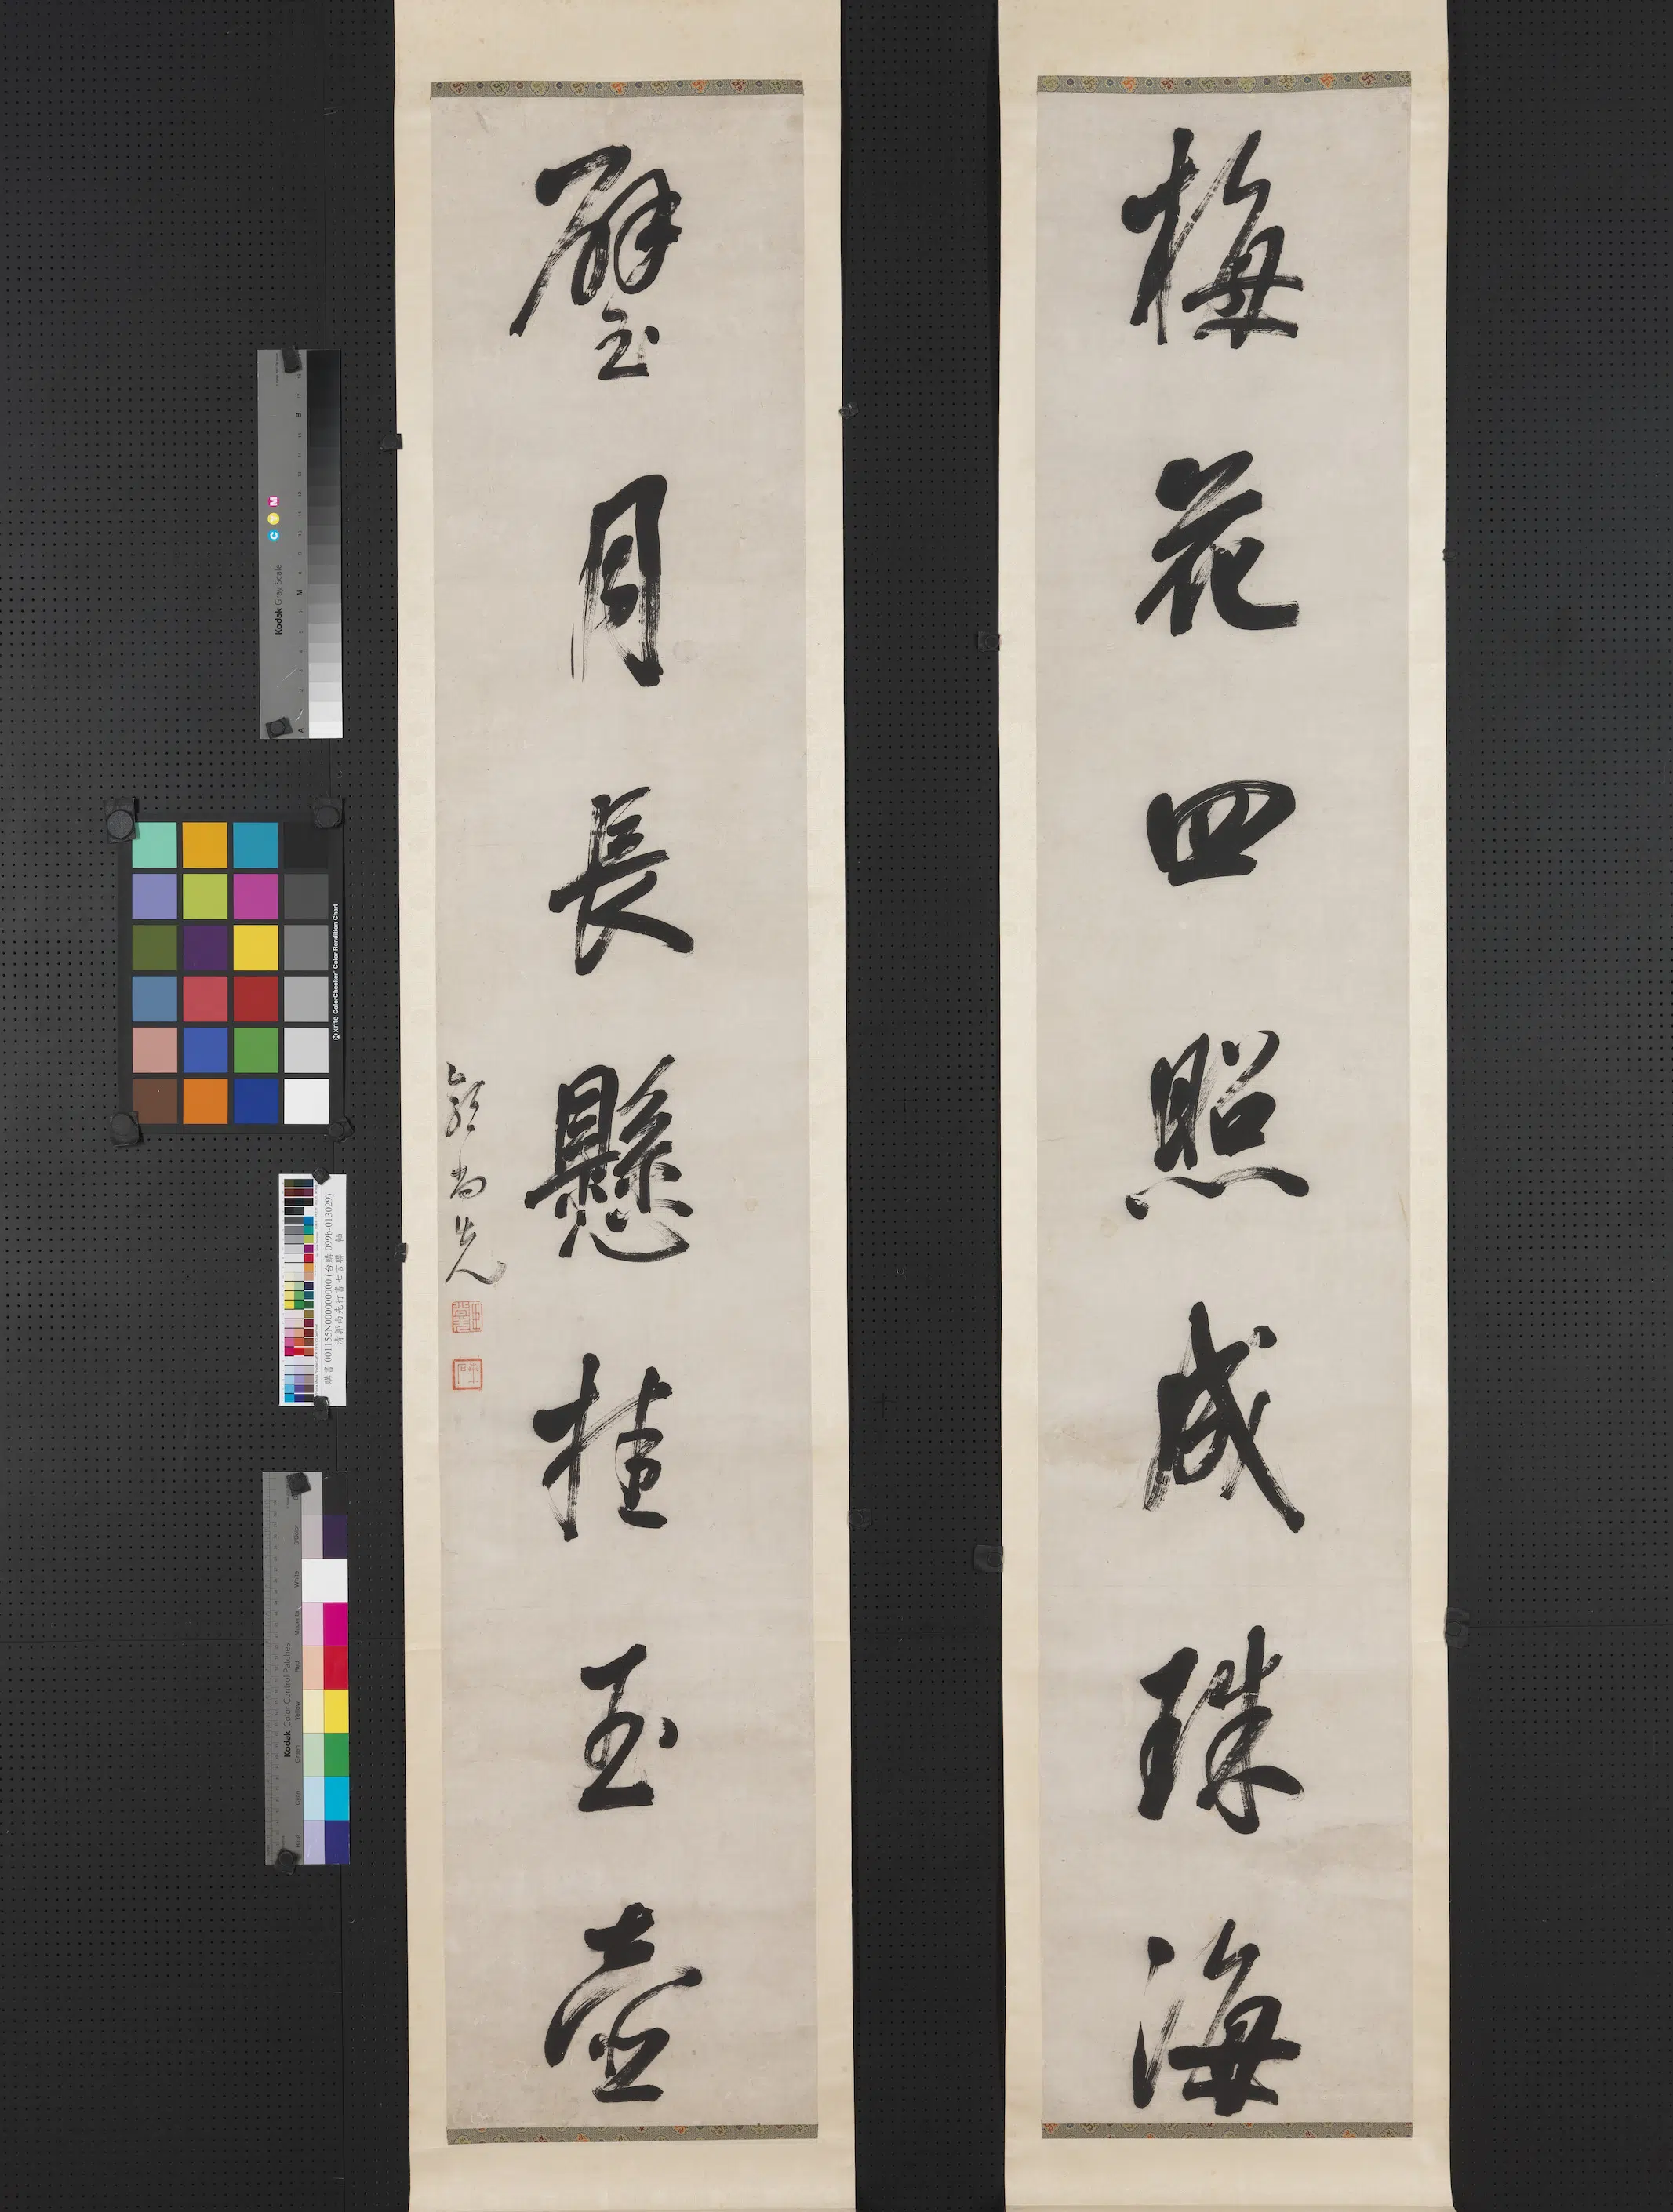 梅花四照成珠海
璧月長懸挂玉壺
郭尚先
Kodak Gray Scale
C Y M
A
M
B
x-rite ColorChecker Color Rendition Chart
購書 001155N000000000 (台購 099b-013029)
清郭尚先行書七言聯 軸
Kodak Color Control Patches
Blue
Cyan
Green
Yellow
Red
Magenta
White